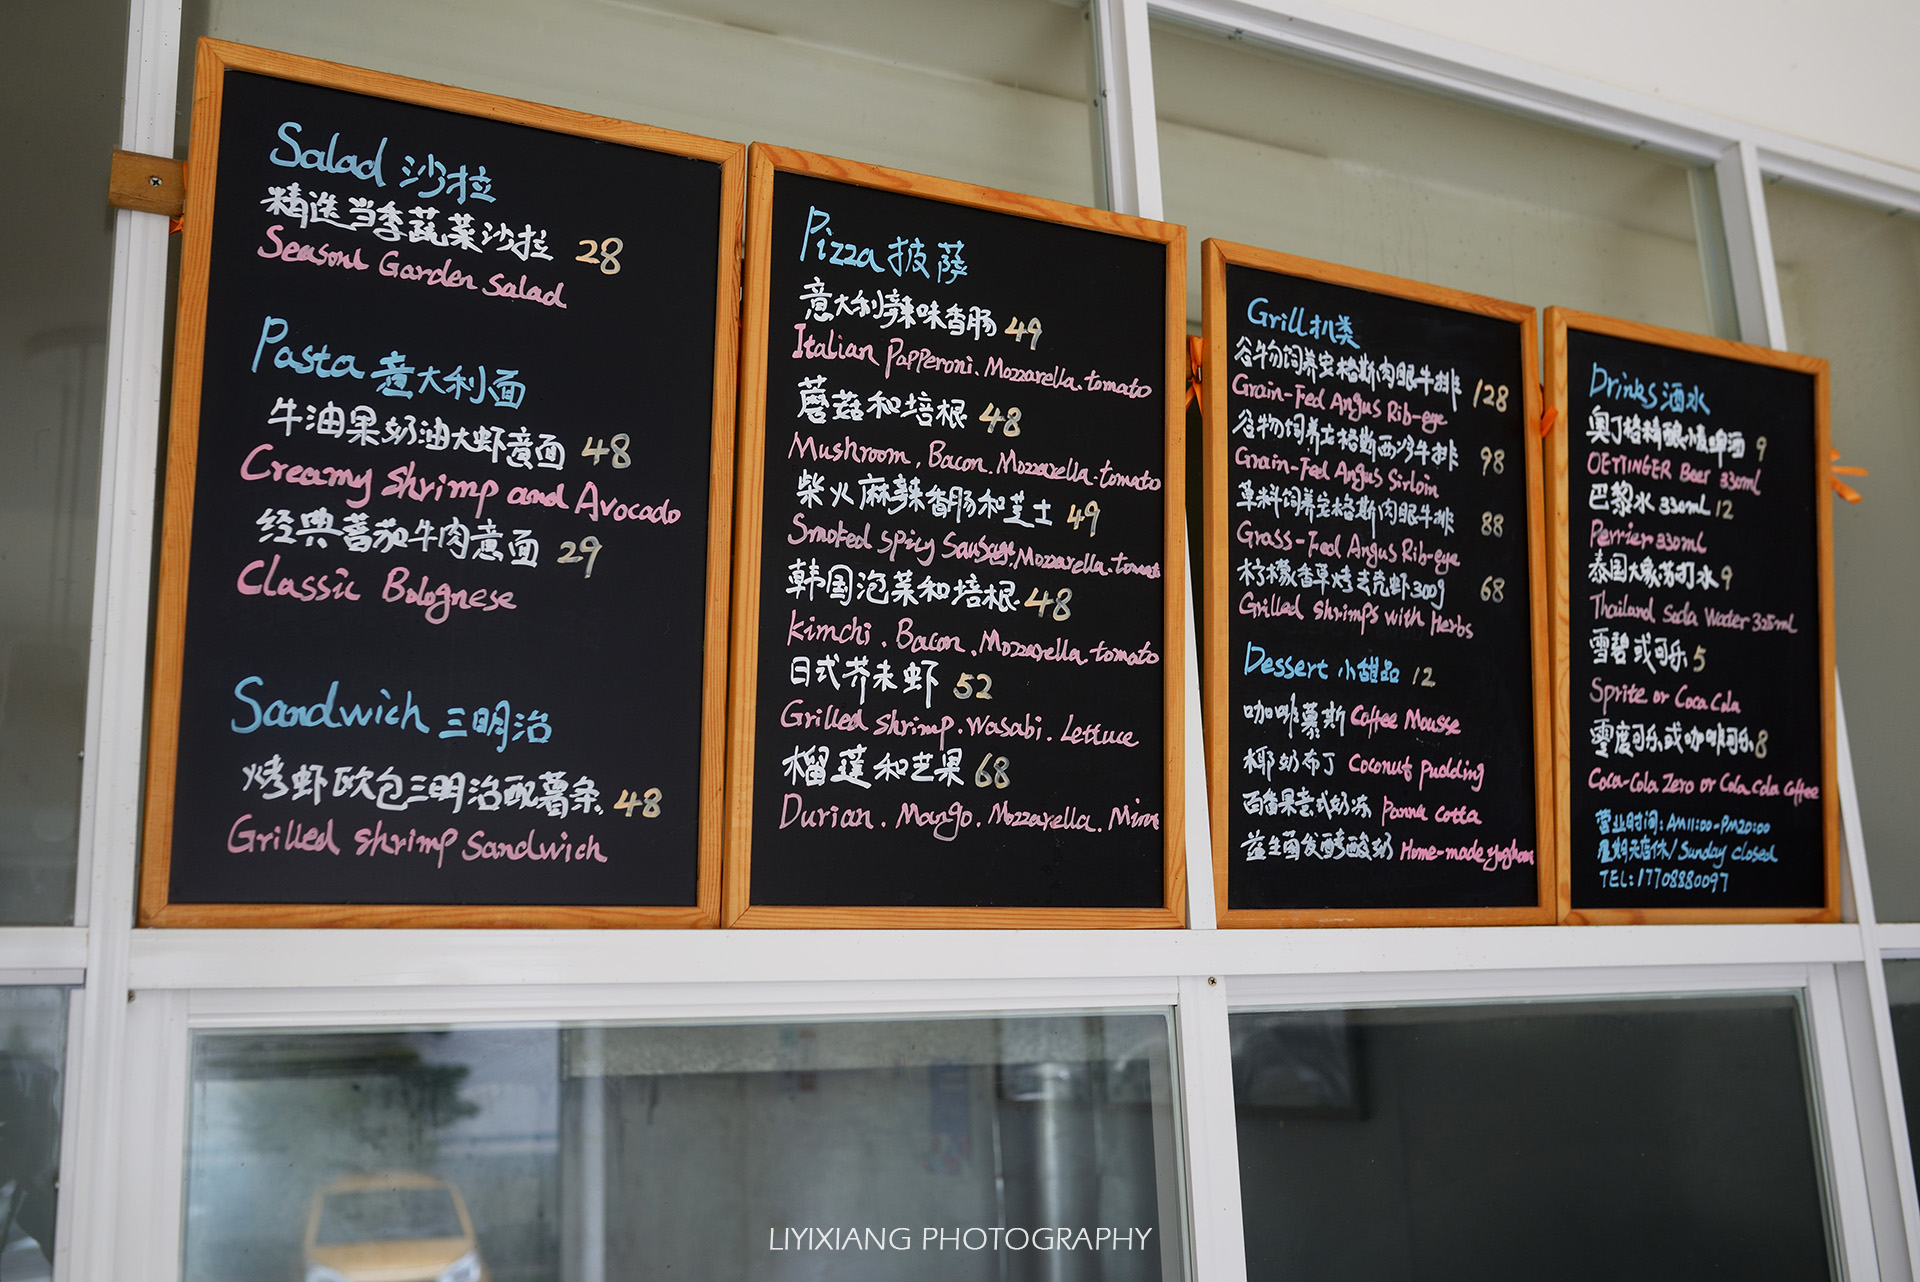 Salad 沙拉
精选当季蔬菜沙拉 28
Seasonl Garden Salad
Pasta 意大利面
牛油果奶油大虾意面 48
Creamy shrimp and Avocado
经典蕃茄牛肉意面 29
Classic Bolognese
Sandwich 三明治
烤虾欧包三明治配薯条 48
Grilled shrimp Sandwich
Pizza 披萨
意大利辣味香肠 49
Italian Papperoni. Mozzarella. tomato
蘑菇和培根 48
Mushroom. Bacon. Mozzarella. tomato
柴火麻辣香肠和芝士 49
Smoked spicy Sausage. Mozzarella. tomato
韩国泡菜和培根 48
kimchi. Bacon. Mozzarella. tomato
日式芥末虾 52
Grilled shrimp. Wasabi. Lettuce
榴莲和芒果 68
Durian. Mango. Mozzarella. Mint
Grill 扒类
谷物饲养安格斯肉眼牛排 128
Grain-Fed Angus Rib-eye
谷物饲养安格斯西冷牛排 98
Grain-Fed Angus Sirloin
草料饲养安格斯肉眼牛排 88
Grass-Fed Angus Rib-eye
柠檬香草烤去壳虾300g 68
Grilled shrimps with Herbs
Dessert 小甜品 12
咖啡慕斯 Coffee Mousse
椰奶布丁 Coconut pudding
百香果意式奶冻 Panna cotta
益生菌发酵酸奶 Home-made
Drinks 酒水
奥丁格精酿小麦啤酒 9
OETTINGER Beer 330ml
巴黎水 330ml 12
Perrier 330ml
泰国大象苏打水 9
Thailand Soda Water 325ml
雪碧或可乐 5
Sprite or Coca Cola
零度可乐或咖啡可乐 8
Coca-Cola Zero or Cola Cola Coffee
营业时间: AM11:00-PM20:00
星期天店休/Sunday closed
TEL: 17708880097
LIYIXIANG PHOTOGRAPHY